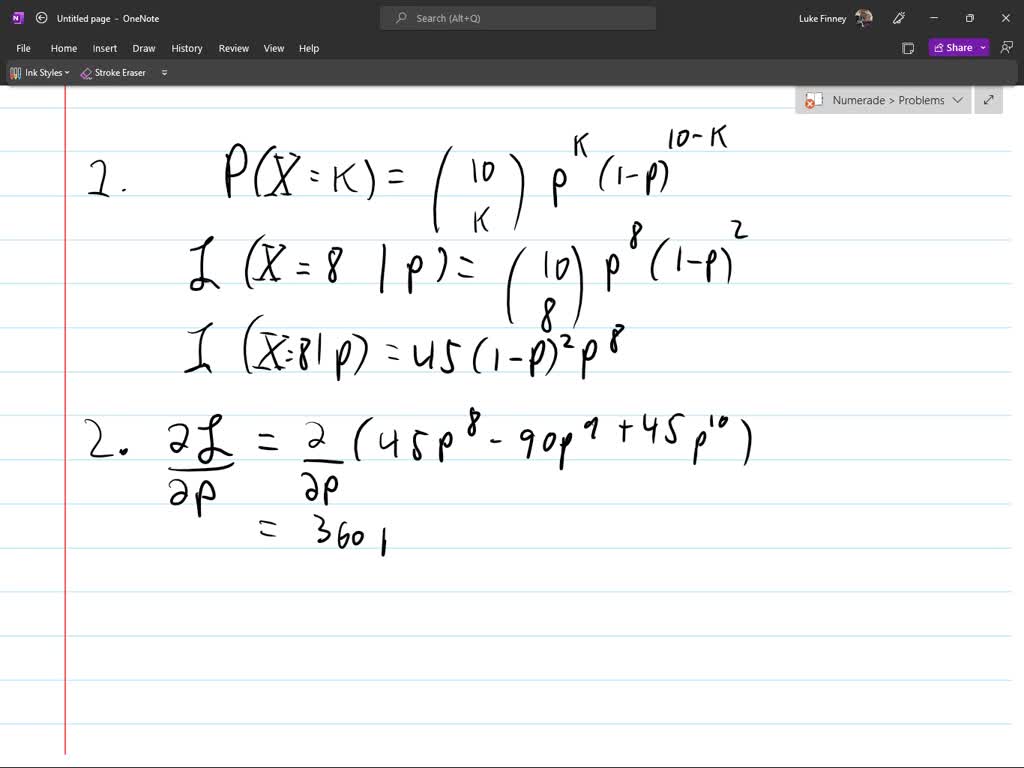 Untitled page - OneNote
Search (Alt+Q)
Luke Finney
File Home Insert Draw History Review View Help
Share
Ink Styles
Stroke Eraser
Numerade > Problems
1. P(X = K) = (10 K) p^K (1-p)^10-K
ℒ (X = 8 | p) = (10 8) p^8 (1-p)^2
ℒ (X = 8 | p) = 45 (1-p)^2 p^8
2. ∂ℒ/∂p = ∂/∂p (45p^8 - 90p^9 + 45p^10)
= 360